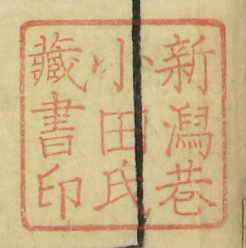 新潟巷
小田氏
藏書印